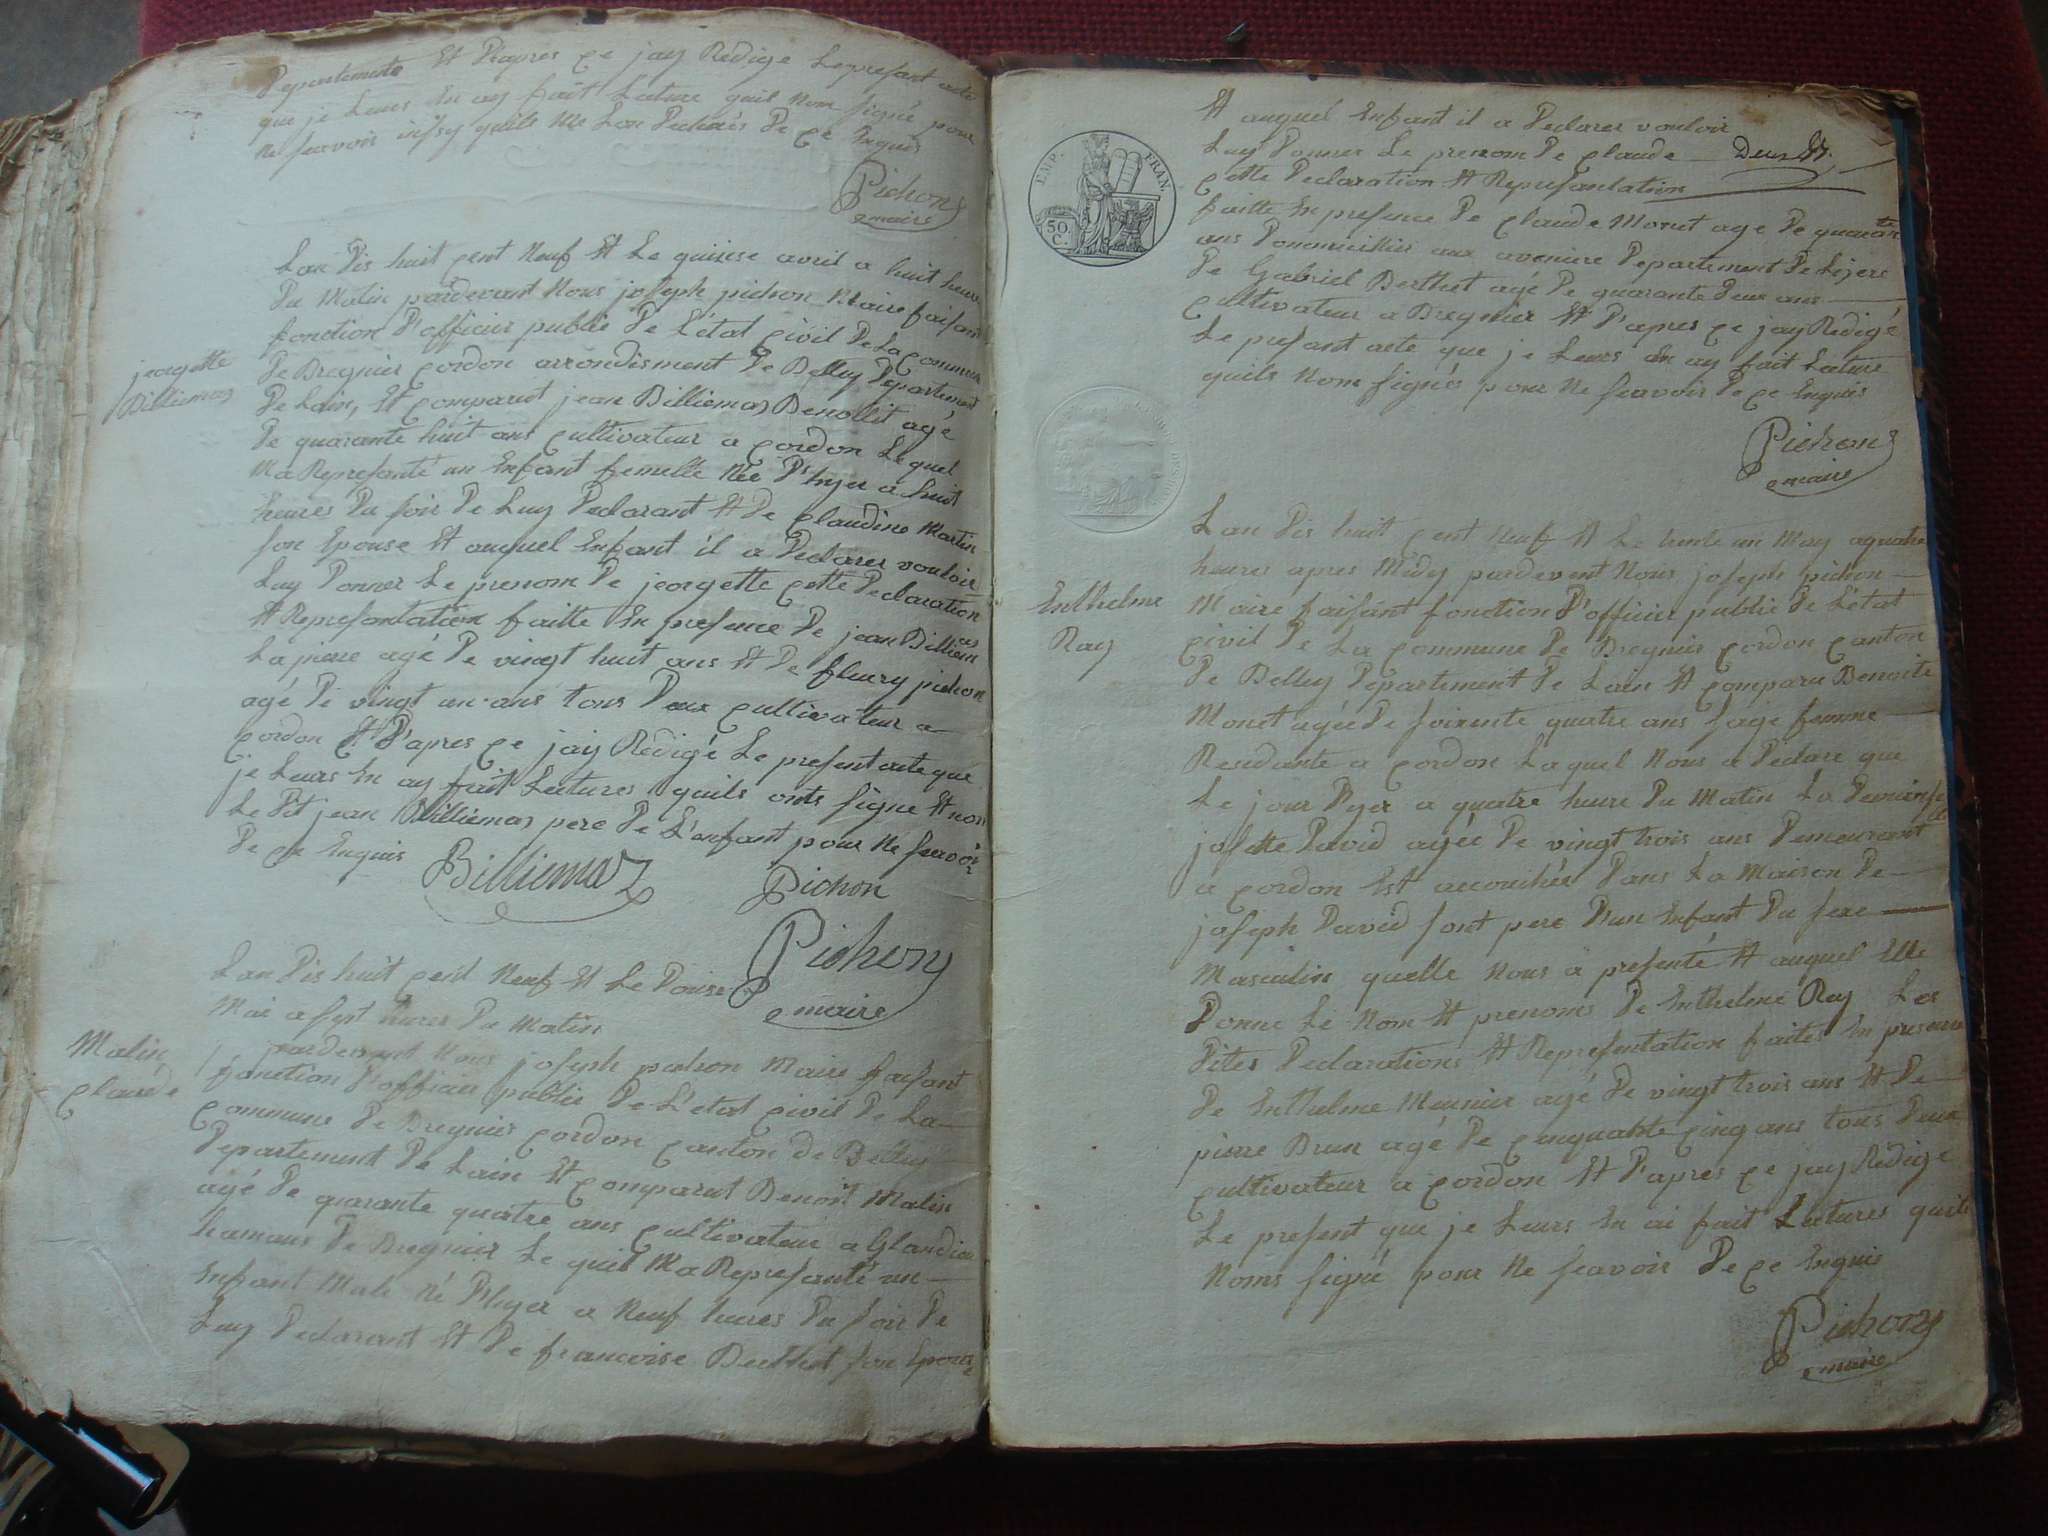 Departemente Et D'apres ce jay Redige Le presant acte
que je Leurs En ay fait Lecture quil nom signé pour
ne scavoir insy quils me Lon Declarés De ce Enquis
Pichon
maire
Lan Dis huit cent Neuf Et Le quinse avril a huit heures
Du Matin pardevant Nous joseph pichon Maire faisant
fonction D'officier public De L'état civil De La commune
De Bregnier cordon arrondisment De Belley Departement
De Lain, Et comparut jean Billiemas Benollit agé
De quarante huit ans cultivateur a cordon Lequel
Ma Represanté un Enfant femelle Née D'hyer a huit
heures Du soir De Luy Declarant Et De Claudine Martin
son Epouse Et auquel Enfant il a Declarer vouloir
Luy Donner Le prenom De jeorgette cette Declaration
Et Represantation faitte En presence De jean Billiemas
La pierre agé De vingt huit ans Et De fleury pichon
agé De vingt un ans tous Deux cultivateur a
cordon Et D'apres ce jay Redigé Le present acte que
je Leurs En ay fait Lectures quils onts signe Et non
Le Dit jean Billiemas pere De L'enfant pour Ne scavoir
De ce Enquis
jeorgette
Billiemas
Billiemaz
Pichon
Pichon
maire
Lan Dis huit cent Neuf Et Le Douse
Mai a sept heures Du Matin
pardevant Nous joseph pichon Maire faisant
fonction D'officier public De L'état civil De La
commune De Bregnier cordon canton de Belley
Departement De Lain Et comparut Benoit Malin
agé De quarante quatre ans cultivateur a Glandieu
hamaus De Bregnier Le quel Ma Represanté un
Enfant Male Né D'hyer a Neuf heures Du soir De
Luy Declarant Et De francoise Berthet son Epouse
Malin
Claude
Et auquel Enfant il a Declarer vouloir
Luy Donner Le prenom De Claude
cette Declaration Et Represantation
faitte En presence De Claude Monet age De quarante
ans Domicillier aux avenière Departement De Lizere
De Gabriel Berthet agé De quarante Deux ans
cultivateur a Bregnier Et D'apres ce jay Redigé
Le presant acte que je Leurs En ay fait Lecture
quils Nom signés pour Ne scavoir De ce Enquis
EMP. FRAN.
50
C.
Pichon
maire
Lan Dis huit cent Neuf Et Le trente un May a quatre
heures apres Midy pardevent Nous joseph pichon
Maire faisant fonction D'officier public De L'état
civil De La commune De Bregnier cordon canton
De Belley Departement De Lain Et comparu Benoite
Monet agée De soixente quatre ans sage femme
Residante a cordon Laquel Nous a Declare que
Le jour D'yer a quatre heure Du Matin La Demoiselle
josette David agée De vingt trois ans Demeurant
a cordon Est accouchée Dans La Maison De
joseph David sont pere D'un Enfant Du sexe
Masculin quelle Nous a presenté Et auquel Elle
Donne Le Nom Et prenoms De Enthelme Ray Les
Dites Declarations Et Represantation faites En presence
De Enthelme Meunier agé De vingt trois ans Et De
pierre Brun agé De cinquante cinq ans tous Deux
cultivateur a cordon Et D'apres ce jay Redige
Le present que je Leurs En ai fait Lectures quils
Noms signé pour Ne scavoir De ce Enquis
Enthelme
Ray
Pichon
maire